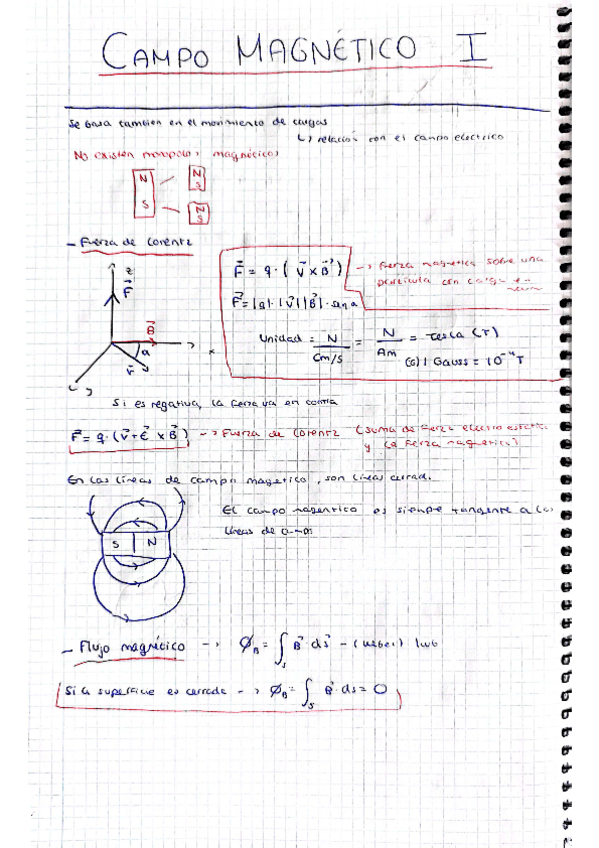 CAMPO MAGNÉTICO I
Se basa tambien en el movimiento de cargas
↳ relación con el campo electrico
No existen monopolos magnéticos
N
S
N
S
N
S
- Fuerza de Lorentz
z
F⃗
B⃗
α
v⃗
x
y
F⃗ = q · ( v⃗ x B⃗ )
-> fuerza magnetica sobre una
particula con carga en
F⃗ = |q| · |v⃗| |B⃗| · sen α
Unidad = N / C m/s = N / Am = tesla (T)
(G) 1 Gauss = 10⁻⁴ T
Si es negativa, la fuerza va en contra
F⃗ = q · (v⃗ + E⃗ x B⃗) -> Fuerza de Lorentz (suma de fuerza electroestatica
y la fuerza magnetica)
En las líneas de campo magnetico, son líneas cerrad.
S N
El campo magentico es siempre tangente a las
líneas de campo
- Flujo magnético -> Ø_B = ∫_S B⃗ · ds⃗ - (weber) 1wb
Si la superficie es cerrada -> Ø_B = ∫_S B⃗ · ds = 0